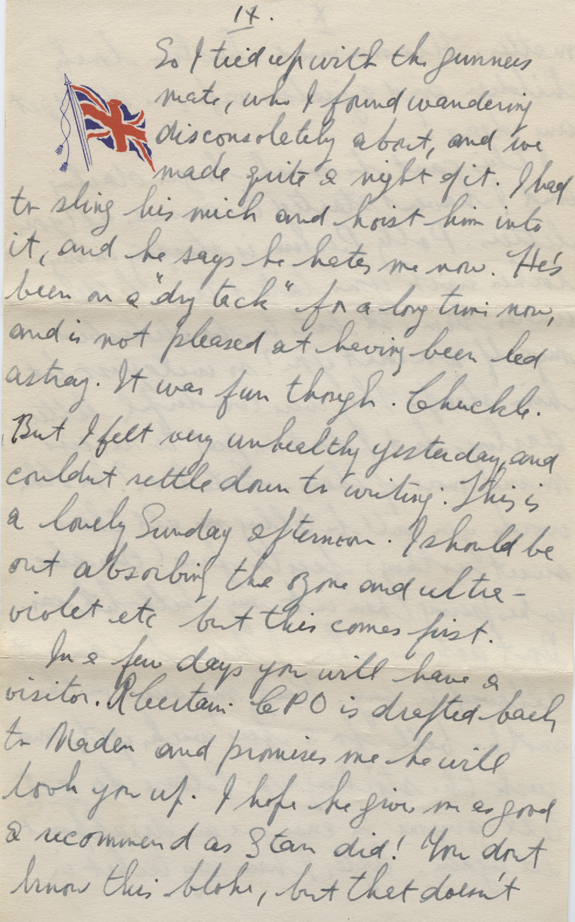 14.
So I tied up with the gunners
mate, who I found wandering
disconsolately about, and we
made quite a night of it. I had
to sling his mick and hoist him into
it, and he says he hates me now. He's
been on a "dry tack" for a long time now,
and is not pleased at having been led
astray. It was fun though. Chuckle.
But I felt very unhealthy yesterday, and
couldnt settle down to writing. This is
a lovely Sunday afternoon. I should be
out absorbing the ozone and ultra-
violet etc but this comes first.
In a few days you will have a
visitor. A certain CPO is drafted back
to Naden and promises me he will
look you up. I hope he gives me as good
a recommend as Stan did! You dont
know this bloke, but that doesn't